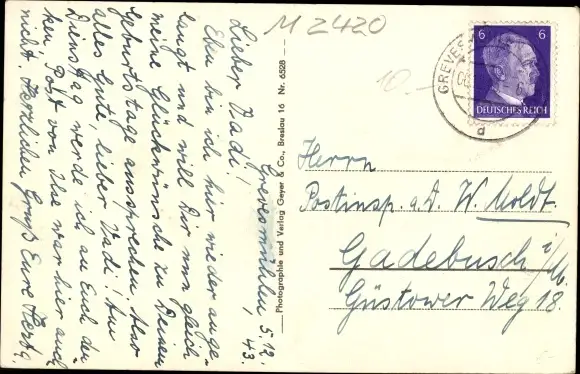 Grevesmühlen, 5.12.
43.
Lieber Vadi!
Eben bin ich hier wieder ange-
langt und will Dir nun gleich
meine Glückwünsche zu Deinem
Geburtstage aussprechen.
alles Gute, lieber Vadi! Am
Dienstag werde ich an Euch den
ken, Post von Ilse war hier auch
nicht. Herzlichen Gruß Eure Herta.
Photographie und Verlag Geyer & Co., Breslau 16 Nr. 6528
M 2420
10.-
GREVES
d
6 6
DEUTSCHES REICH
Herrn
Postinsp. a.D. W. Moldt
Gadebusch i/M.
Güstower Weg 18.